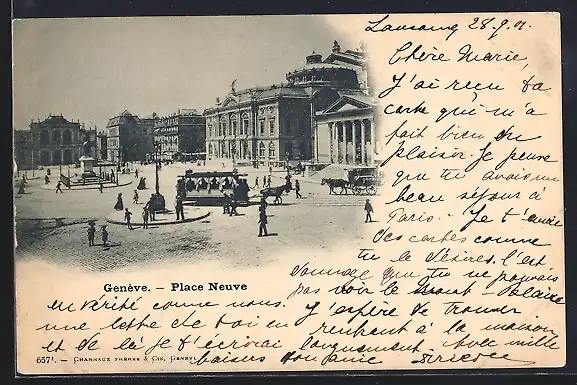 Lausanne 28.9.01.
Chère Marie,
J'ai reçu ta
carte qui m'a
fait bien du
plaisir. Je pense
que tu avais un
beau séjour à
Paris. Je t'
des cartes comme
tu le désires. C'est
dommage que tu ne pouvais
pas voir le
en vérité comme nous. J'espère de trouver
une lettre de toi en rentrant à la maison
et de là je t'écrirai longuement. Avec mille
baisers ton amie
Genève. - Place Neuve
657¹. - CHARNAUX FRÈRES & Cie, GENÈVE